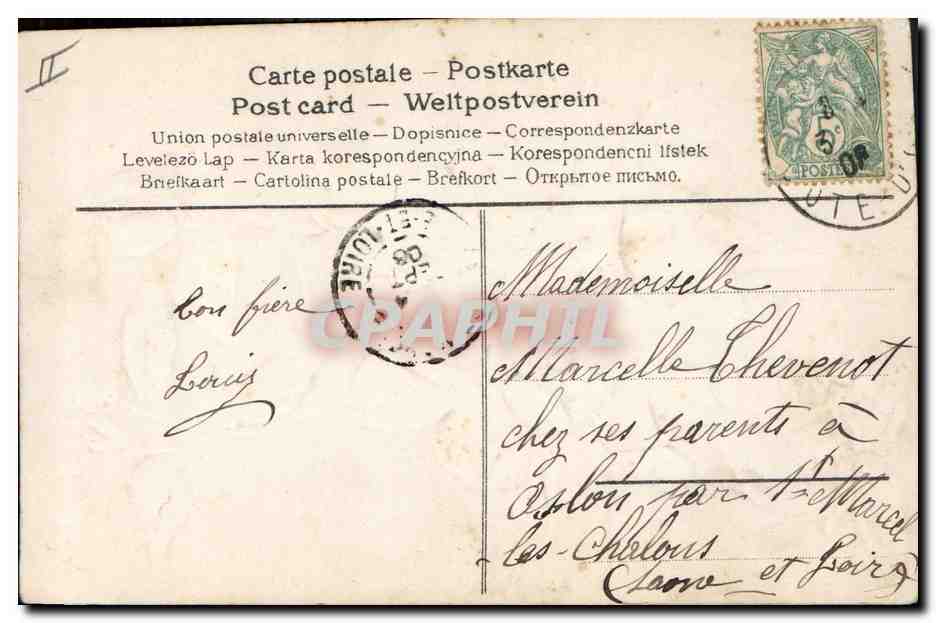 II
Carte postale – Postkarte
Post card – Weltpostverein
Union postale universelle – Dopisnice – Correspondenzkarte
Levelező Lap – Karta korespondencyjna – Korespondencni lístek
Briefkaart – Cartolina postale – Brefkort – Открытое письмо.
5 c
POSTE
UTE
ET-LOIRE
SEPT
08
Ton frère
Louis
CPAPHIL
Mademoiselle
Marcelle Thevenot
chez ses parents à
Oslon par St Marcel
les-Chalons
(Saone et Loire)